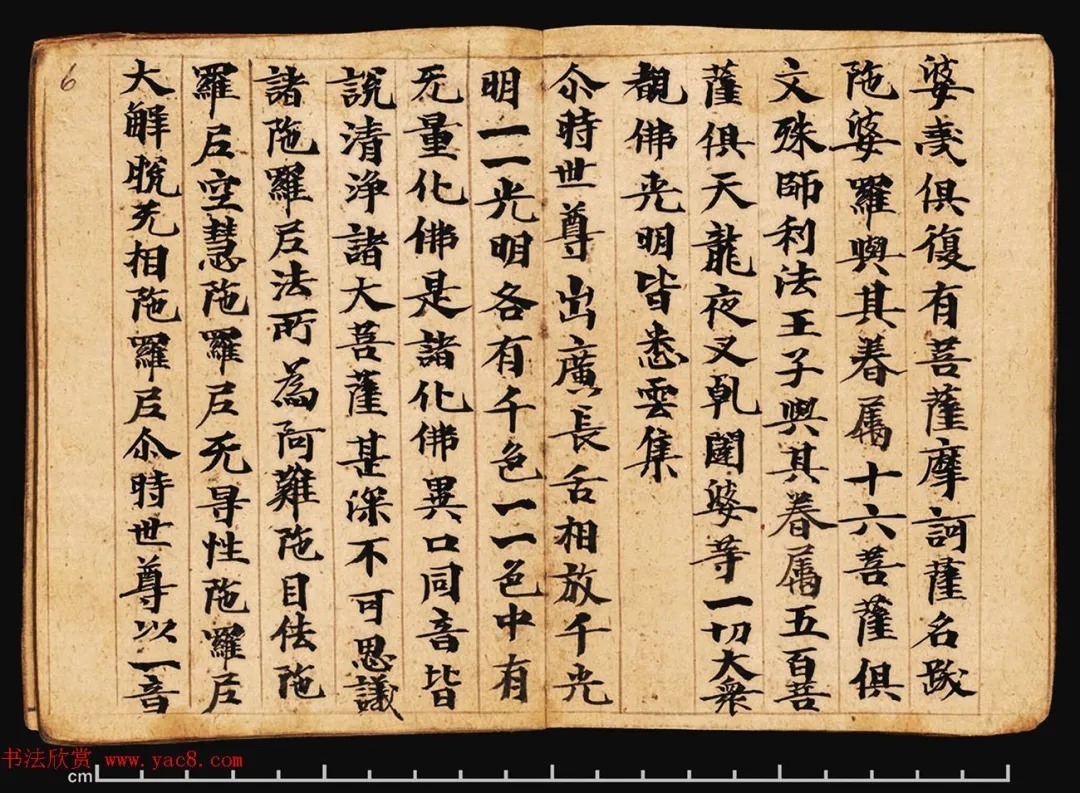 婆夛俱復有菩薩摩訶薩名跋
陁婆羅與其眷属十六菩薩俱
文殊師利法王子與其眷属五百菩
薩俱天龍夜叉乹闥婆等一切大衆
覩佛光明皆悉雲集
尒時世尊出廣長舌相放千光
明一一光明各有千色一一色中有
无量化佛是諸化佛異口同音皆
說清淨諸大菩薩甚深不可思議
諸陁羅尼法所為阿難陁目佉陁
羅尼空慧陁羅尼无㝵性陁羅尼
大解脫无相陁羅尼尒時世尊以一音
6
书法欣赏 www.yac8.com
cm